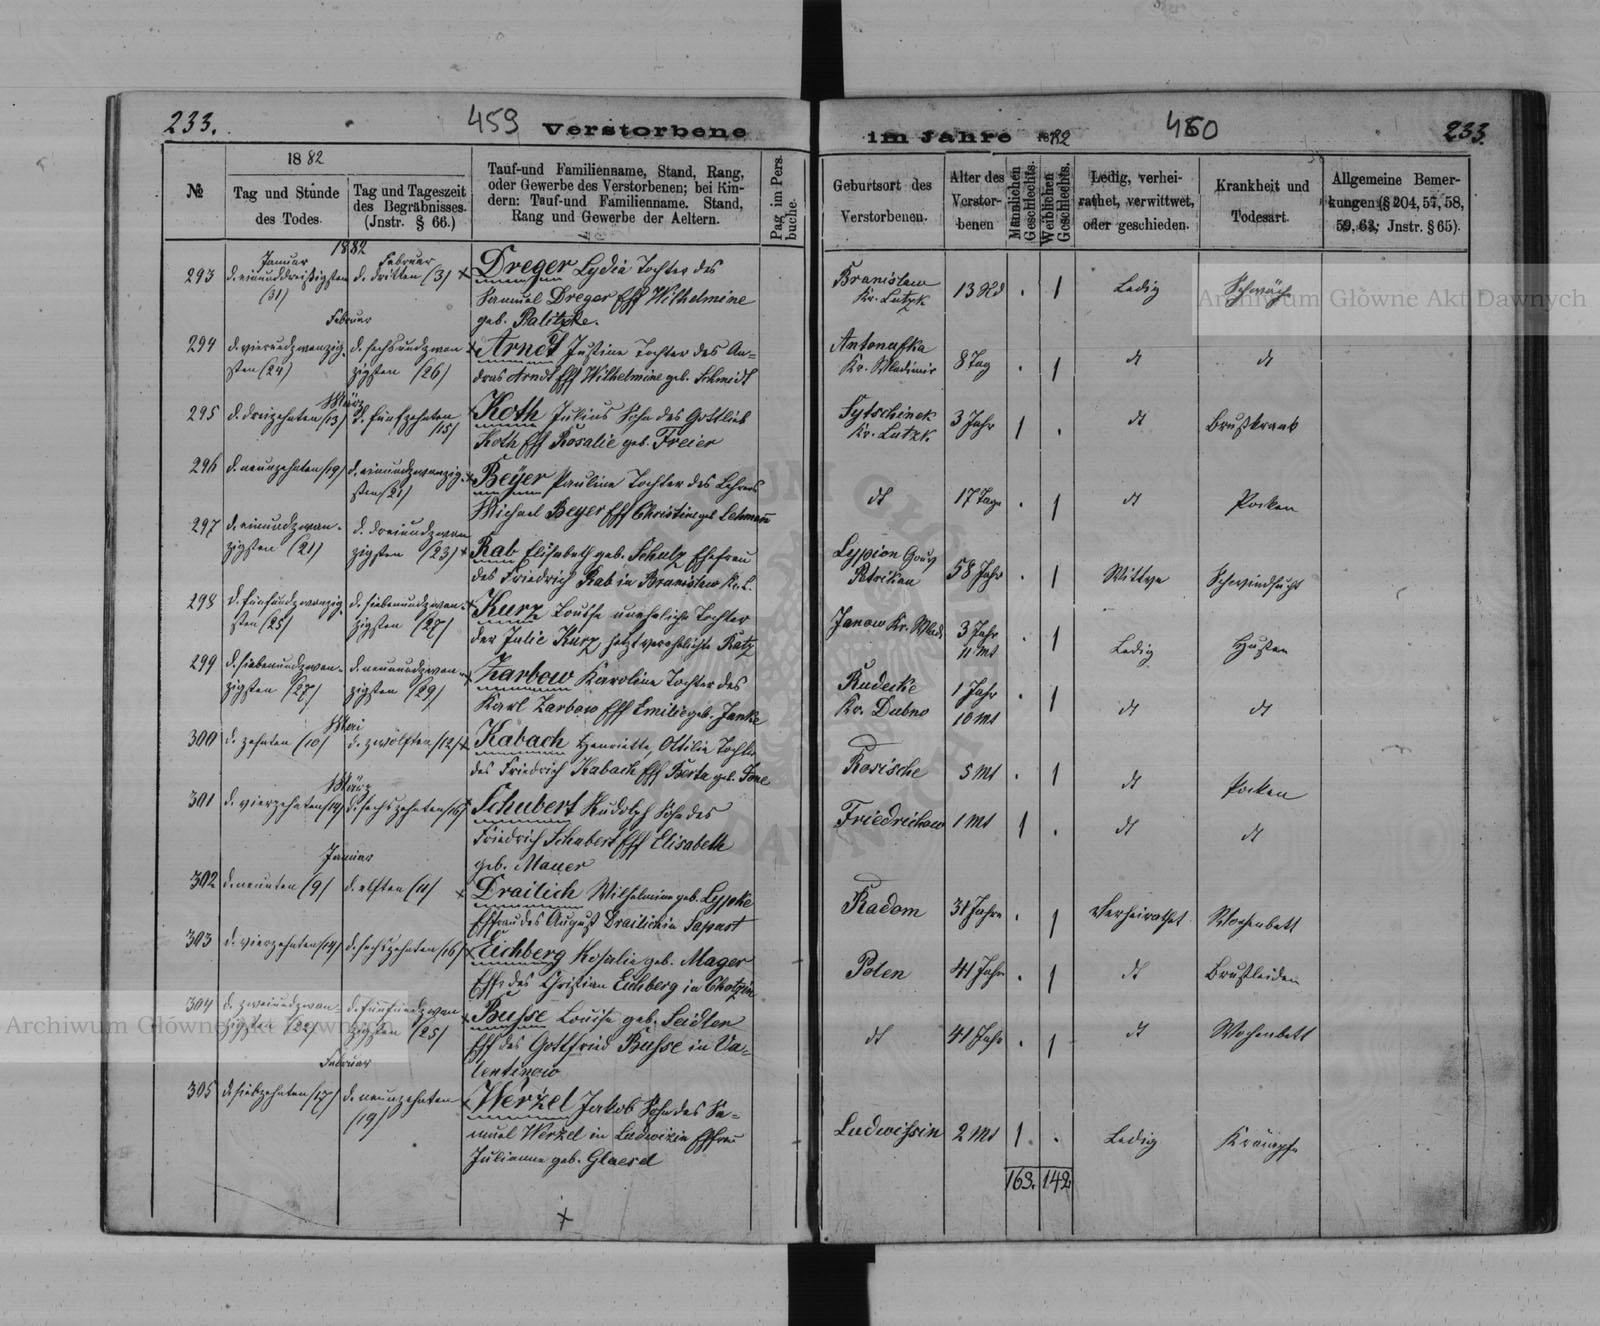 233.
459
Verstorbene
im Jahre 1882
460
233.
№
1882
Tag und Stunde
des Todes.
Tag und Tageszeit
des Begräbnisses.
(Jnstr. § 66.)
Tauf-und Familienname, Stand, Rang,
oder Gewerbe des Verstorbenen; bei Kin-
dern: Tauf-und Familienname. Stand,
Rang und Gewerbe der Aeltern.
Pag im Pers.
buche.
Geburtsort des
Verstorbenen.
Alter des
Verstor-
benen
Männlichen
Geschlechts.
Weiblichen
Geschlechts.
Ledig, verhei-
rathet, verwittwet,
oder geschieden.
Krankheit und
Todesart.
Allgemeine Bemer-
kungen (§ 204, 57, 58,
59, 63; Jnstr. § 65).
1882
Januar
Februar
293 d. einunddreißigsten d. dritten (3) x Dreger Lydia Tochter des
(31) Samuel Dreger Eff Wilhelmine
geb. Palitzke.
Branislaw
Kr. Lutzk
13 1 Ledig Schwäch
Februar
294 d. vierundzwanzig- d. sechsundzwan- x Arndt Justine Tochter des An-
sten (24) zigsten (26) dras Arndt Eff Wilhelmine geb. Schmidt
Antonufka
Kr. Wladimir
8 Tag 1 dt dt
März
295 d. dreizehnten (13) d. fünfzehnten (15) Koth Julius Sohn des Gottlieb
Koth Eff Rosalie geb. Freier
Sytschinek
Kr. Lutzk
3 Jahr 1 dt Brustkrank
296 d. neunzehnten (19) d. einundzwanzig- x Beyer Pauline Tochter des Lehrers
sten (21) Michael Beyer Eff Christine geb Lehmann
dt 17 Tage 1 dt Pocken
297 d. einundzwan- d. dreiundzwan-
zigsten (21) zigsten (23) x Rab Elisabeth geb. Schulz Ehefrau
des Friedrich Rab in Branislaw Kr. L.
Lypion Gouv
Petrikau
58 Jahr 1 Wittwe Schwindsucht
298 d. fünfundzwanzig- d. siebenundzwan- x Kurz Louise uneheliche Tochter
sten (25) zigsten (27) der Julie Kurz, jetzt verehelichte Ratz
Janow Kr. Wlad. 3 Jahr
11 Mt 1 Ledig Husten
299 d. siebenundzwan- d. neunundzwan- x Zarbow Karoline Tochter des
zigsten (27) zigsten (29) Karl Zarbow Eff Emilie geb. Janke
Rudecke
Kr. Dubno
1 Jahr
10 Mt 1 dt dt
Mai
300 d. zehnten (10) d. zwölften (12) x Kabach Henriette, Ottilie Tochter
des Friedrich Kabach Eff Berta geb.
Rosische 5 Mt 1 dt Pocken
März
301 d. vierzehnten (14) d. sechszehnten (16) Schubert Rudolph Sohn des
Friedrich Schubert Eff Elisabeth
geb. Mauer
Friedrichow 1 Mt 1 dt dt
Januar
302 d. neunten (9) d. elften (11) x Drailich Wilhelmine geb. Lypke
Effrau des August Drailich in Sapust
Radom 31 Jahre 1 Verheirathet Wochenbett
303 d. vierzehnten (14) d. sechszehnten (16) x Eichberg Rosalie geb. Mager
Effr des Christian Eichberg in Chotzin
Polen 41 Jahr 1 dt Brustleiden
304 d. zweiundzwan- d. fünfundzwan- x Busse Louise geb. Seidler
zigsten (22) zigsten (25) Eff des Gottfried Busse in Va-
lentinow
dt 41 Jahr 1 dt Wochenbett
Februar
305 d. siebzehnten (17) d. neunzehnten x Werzel Jakob Sohn des Sa-
(19) muel Werzel in Ludwizin Effrau
Julianne geb. Glaesel
Ludwissin 2 Mt 1 Ledig Krämpfe
163. 142
x
Archiwum Główne Akt Dawnych
Archiwum Główne Akt Dawnych